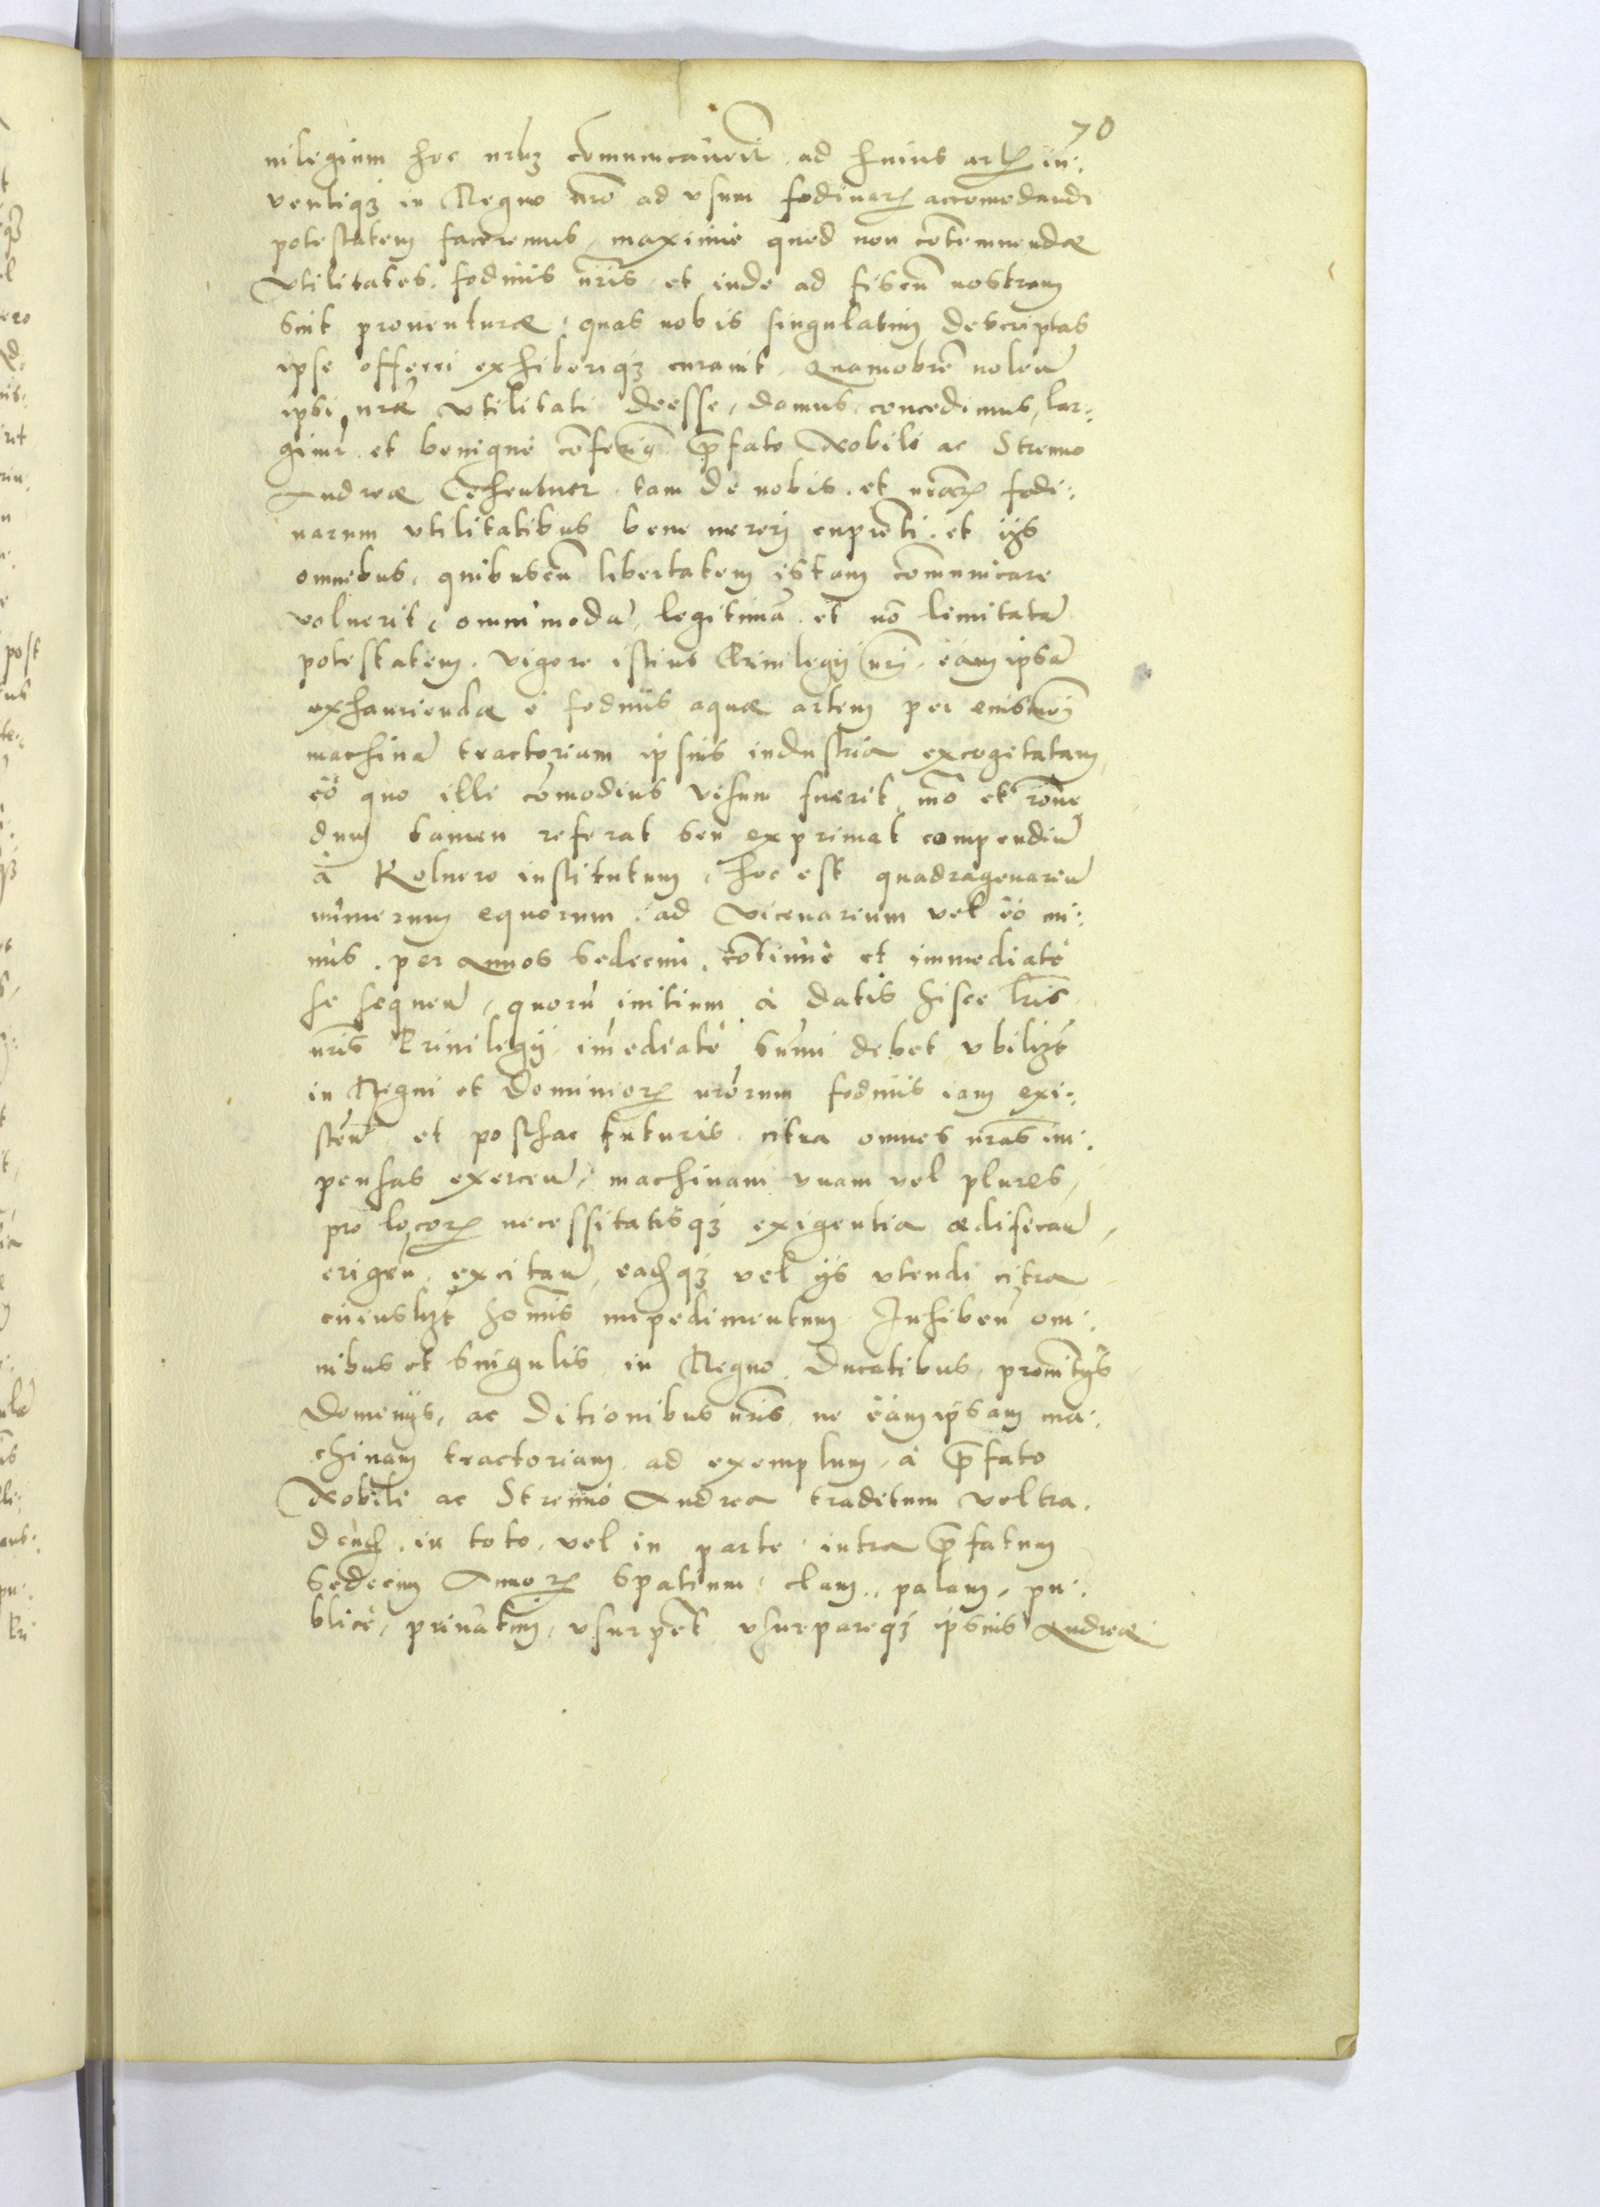 70
uilegium hoc urbz comunicauerit ad huius artis in:
uentiqz in Regno nrō ad vsum fodinarū accomodandi
potestatem faceremus, maxime quod non contemnendæ
vtilitates fodinis nris et inde ad fiscū nostrum
sint prouenturæ: quas nobis singulatim descriptas
ipse offerri exhiberiqz curauit. Quamobrē nolen
ipsi nræ vtilitati deesse, damus, concedimus, lar:
gimr et benignè cōferim̄ p̄fato Nobili ac Strenuo
Andreæ Cehentner tam de nobis et nrarū fodi:
narum vtilitatibus bene merery cupienti et ijs
omnibus, quibuscū libertatem istam comunicare
voluerit, omnimodā, legitimā et nō limitatā
potestatem. Vigore istius Priuilegij nrj, eam ipsā
exhauriendæ e fodinis aquæ artem per
machinā tractoriam ipsius industria excogitatam,
eo quo illi comodius visum fuerit mō et rōne
dum tamen referat seu exprimat compendiū
à Rolnero institutum, hoc est quadragenariū
numerum equorum ad vicenarium vel eo mi:
nus, per annos sedecim, cōtinuè et immediatè
se sequen, quorū initium à datis hisce lris
nris Priuilegij imediatè sumi debet vbilizt
in Regni et Dominiorū nrorum fodinis iam exi:
sten et posthac futuris citra omnes nras im:
pensas exercen, machinam vnam vel plures,
pro locorū necessitatisqz exigentia ædifican,
erigen, excitan, eadqz vel ijs vtendi citra
cuiuslizt homis impedimentum Inhiben om:
nibus et singulis in Regno, Ducatibus, prouintijs
Dominijs, ac Ditionibus nris, ne eam ipsam ma:
chinam tractoriam ad exemplum à p̄fato
Nobili ac Strenuo Andrea traditum vel tra:
dend, in toto, vel in parte intra p̄fatum
sedecim Annorū spatium, clam, palam, pu:
blicè, priuatim, vsurpet vsurpareqz ipsius Andreæ